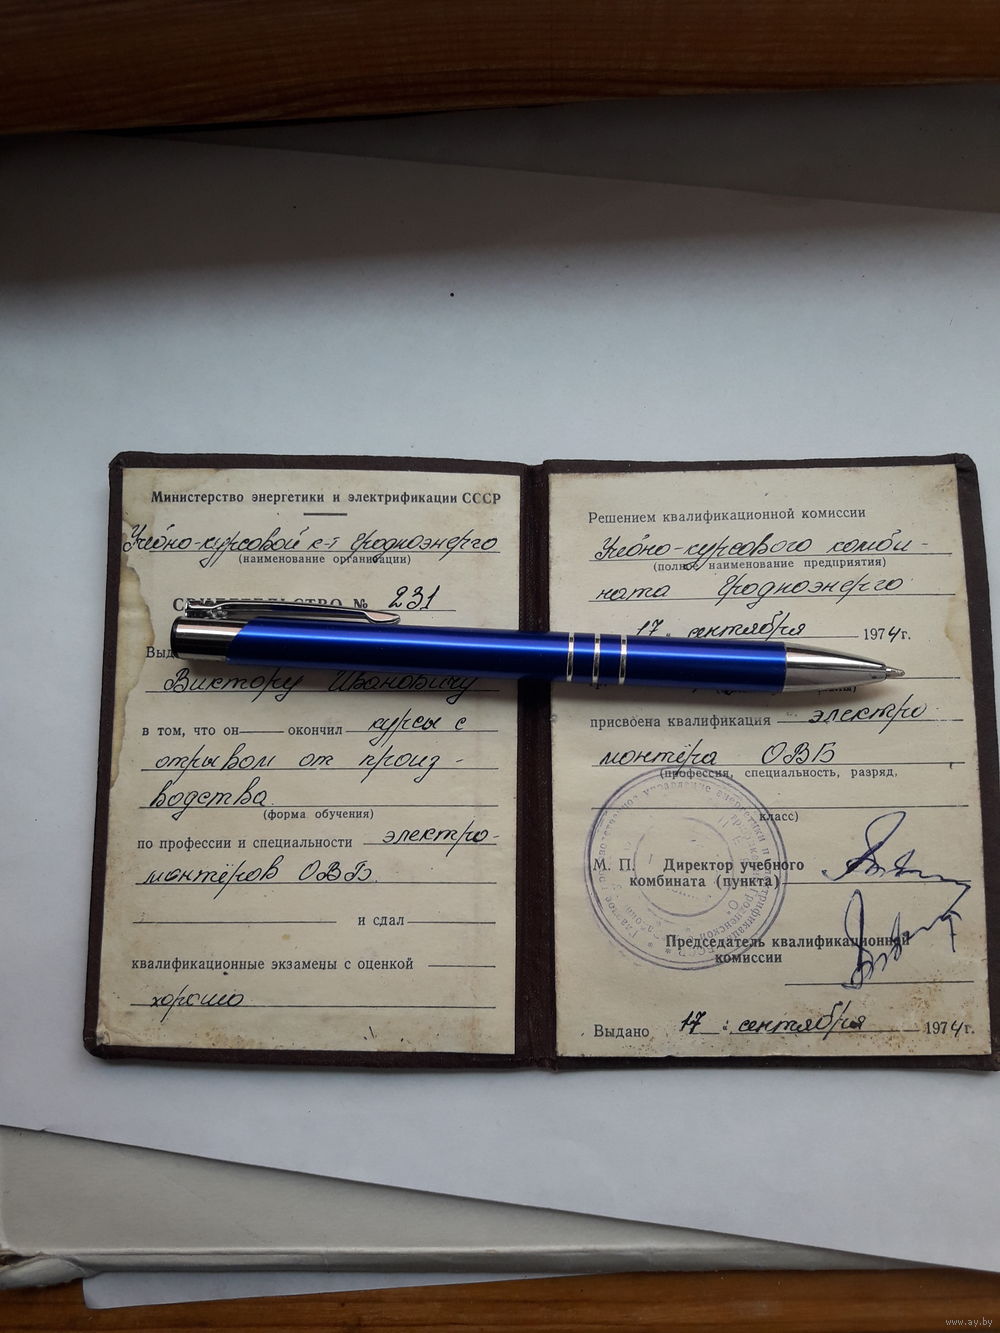 Министерство энергетики и электрификации СССР
Учебно-курсовой к-т Гродноэнерго
(наименование организации)
СВИДЕТЕЛЬСТВО № 231
Выд
Виктору Ивановичу
в том, что он окончил курсы с
отрывом от произ-
водства
(форма обучения)
по профессии и специальности электро-
монтёров ОВБ.
и сдал
квалификационные экзамены с оценкой
хорошо
Решением квалификационной комиссии
Учебно-курсового комби-
(полное наименование предприятия)
ната Гродноэнерго
17 " сентября 1974 г.
присвоена квалификация электро
монтёра ОВБ
(профессия, специальность, разряд,
класс)
М. П. Директор учебного
комбината (пункта)
Председатель квалификационной
комиссии
Выдано 17 " сентября 1974 г.
www.ay.by